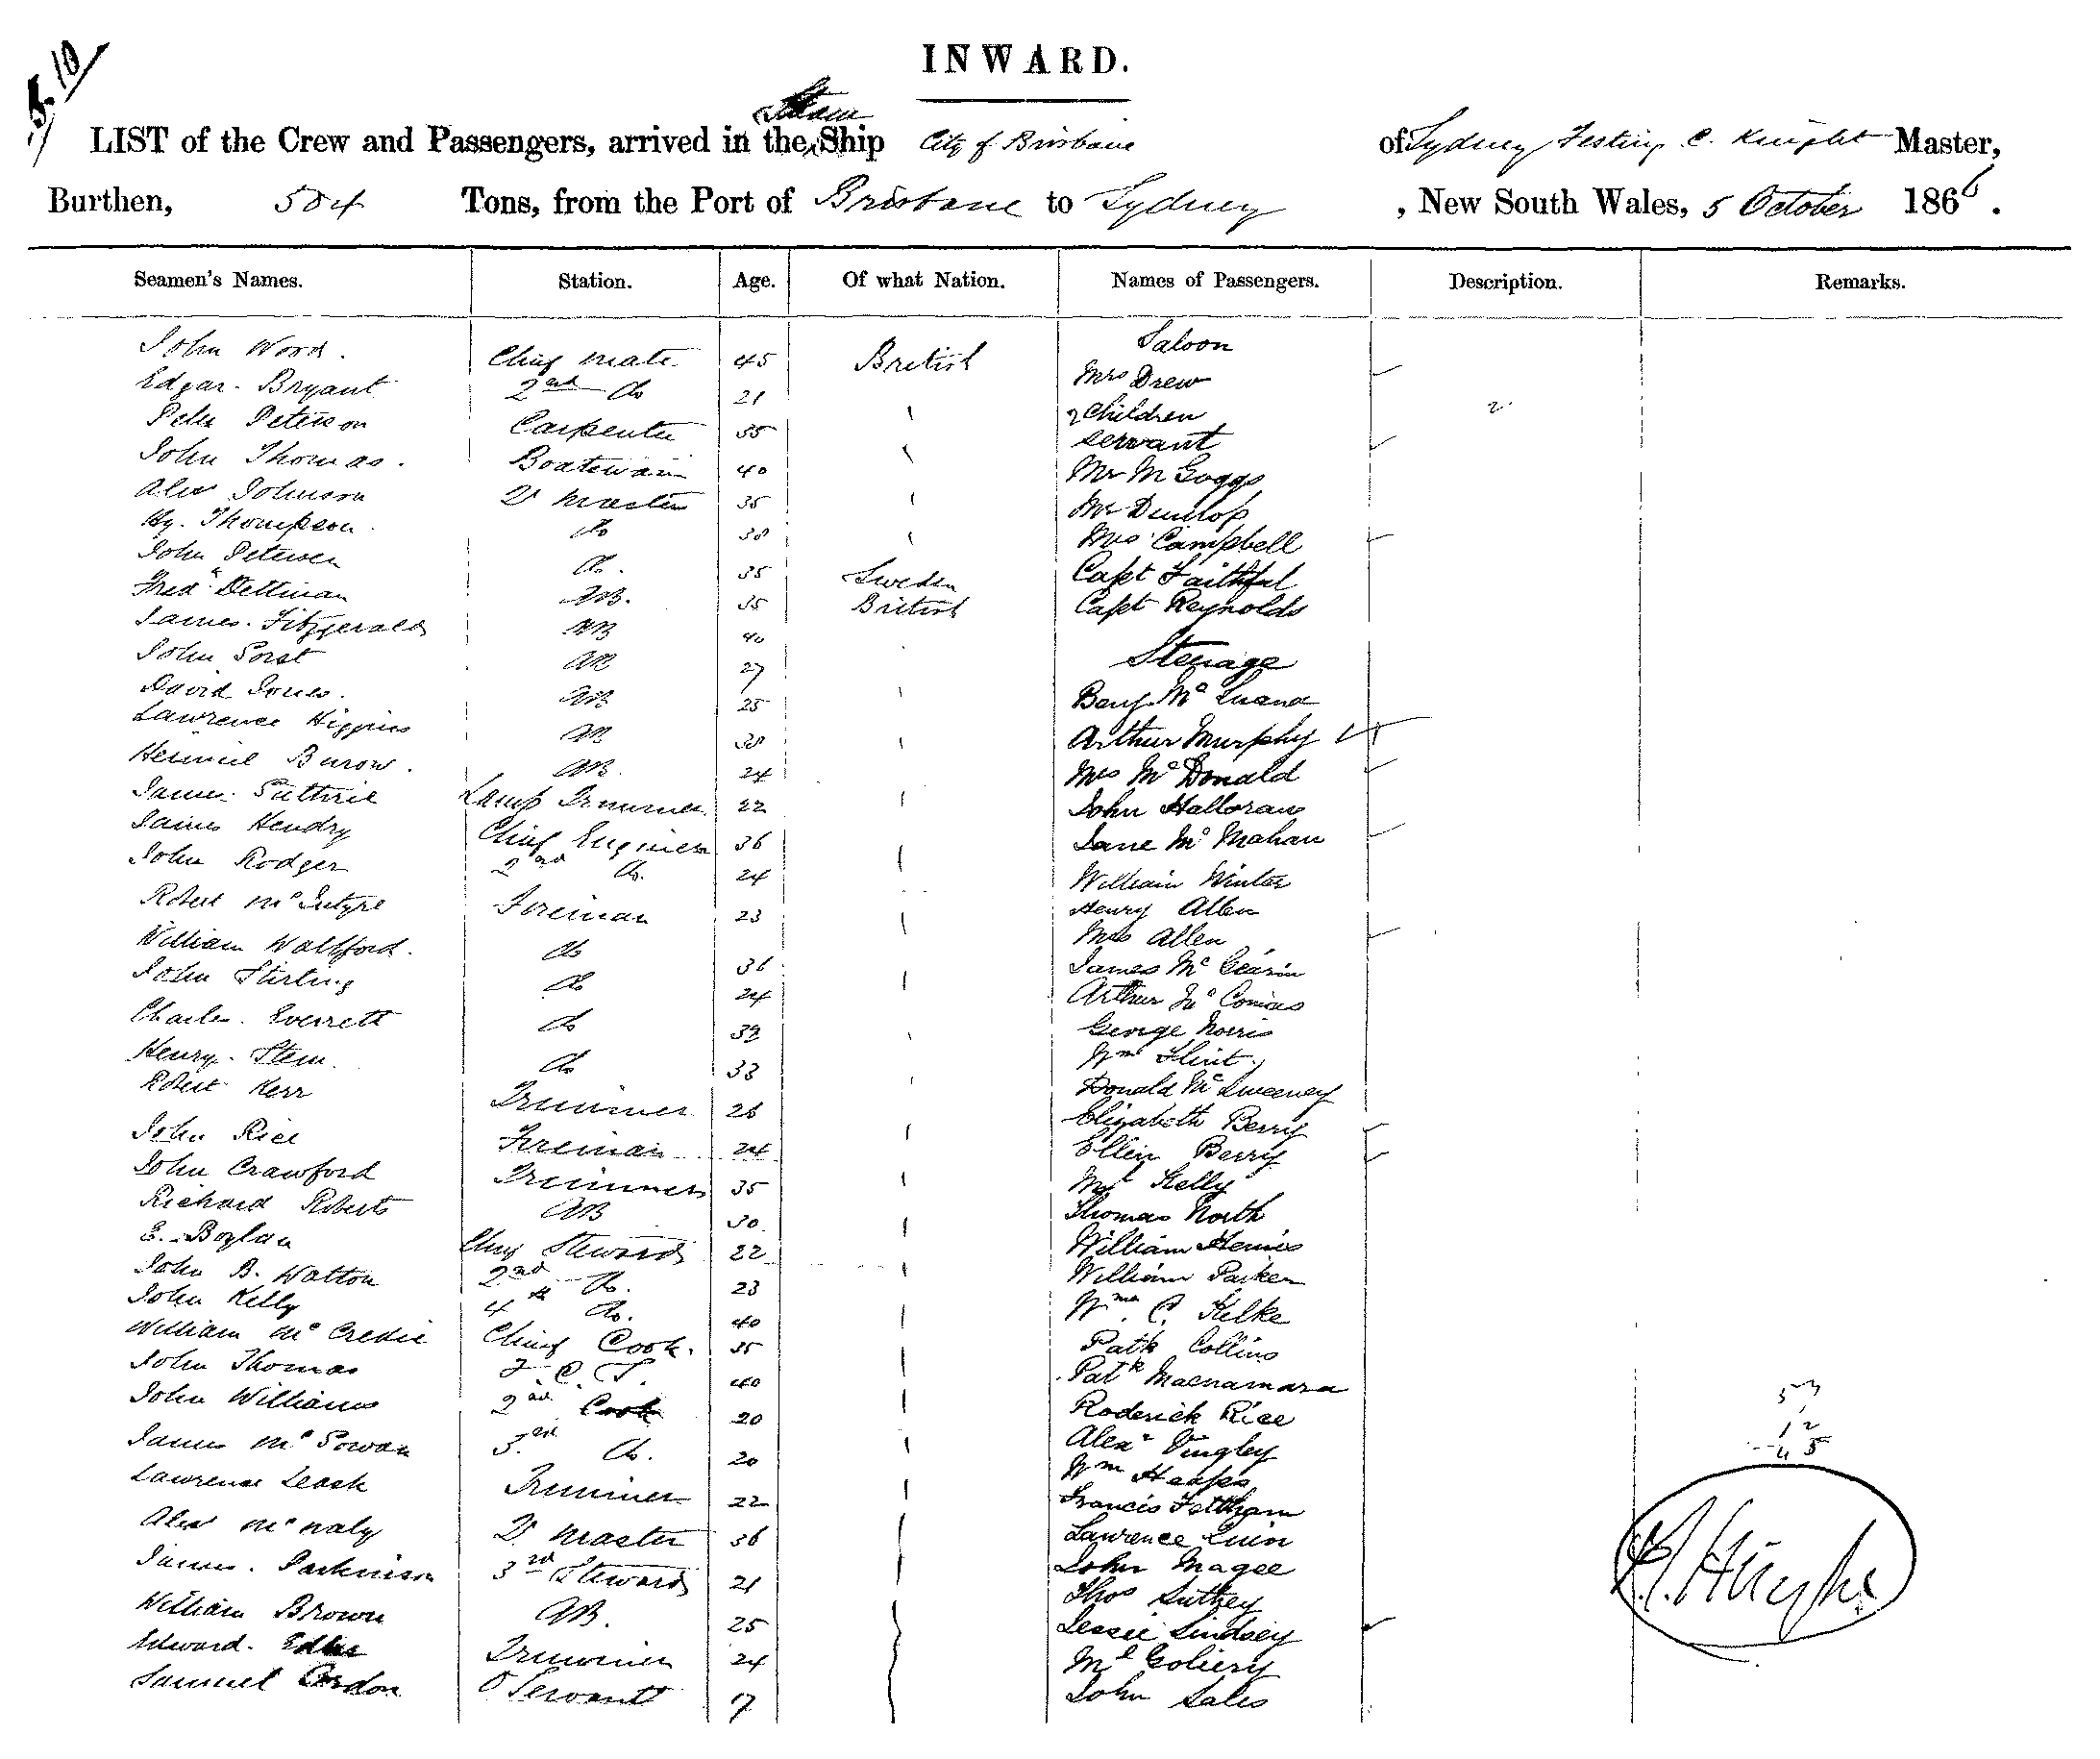 5.10
INWARD.
LIST of the Crew and Passengers, arrived in the Steam Ship City of Brisbane of Sydney Testing C. Knight Master,
Burthen, 504 Tons, from the Port of Brisbane to Sydney, New South Wales, 5 October 1866.
Seamen's Names. Station. Age. Of what Nation. Names of Passengers. Description. Remarks.
Saloon
John Wood. Chief Mate 45 British Mrs Drew
Edgar Bryant 2nd Do 21 2 Children 2
Peter Peterson Carpenter 35 servant
John Thomas. Boatswain 40 Mr McGoggs
Alex Johnson Qr Master 35 Mr Dunlop
Hy. Thompson Do 30 Mrs Campbell
John Petersen Do. 35 Sweden Capt Faithful
Fred Dettman AB. 35 British Capt Reynolds
James Fitzgerald AB 40
Steerage
John AB 27
David Jones. AB 25 Benj Mc Luana
Lawrence Higgins AB 30 Arthur Murphy
Burow. AB. 24 Mrs McDonald
James Guthrie Lamp Trimmer 22 John Halloran
James Hendry Chief Engineer 36 Jane McMahan
John Rodger 2nd Do. 24 William Winter
Robert McIntyre Fireman 23 Henry Allen
William Walkford. Do 36 Mrs Allen
John Stirling Do 24 James Mc
Charles Everrett Do 32 Arthur Mc
Henry Stem Do 33 George Norris
Robert Kerr Trimmer 26 Wm Flint
Donald McSweeney
John Rice Fireman 24 Elizabeth Berry
John Crawford Trimmer 35 Ellen Berry
Richard Roberts AB 30 Ml Kelly
E. Boylan Chief Steward 22 Thomas North
John B. Watton 2nd Do. 23 William
John Kelly 4th Do. 40 William Parker
William McCredie Chief Cook. 35 Wm. C. Kelke
John Thomas F. C. S. 40 Patk Collins
John Williams 2nd Cook 20 Patk Macnamara
James McGowan 3rd Do. 20 Roderick Rice
Lawrence Leask Trimmer 22 Alexr Vingley
Alex McNaly Qr Master 36 Wm Heaps
James Parkinson 3rd Steward 21 Francis Feltham
William Brown AB. 25 Lawrence Quin
Edward Edler Trimmer 24 John Magee
Samuel Gordon O Servant 17 Thos Suthey
Jessie Lindsey
Ml Goliery
John Sales
57
12
45